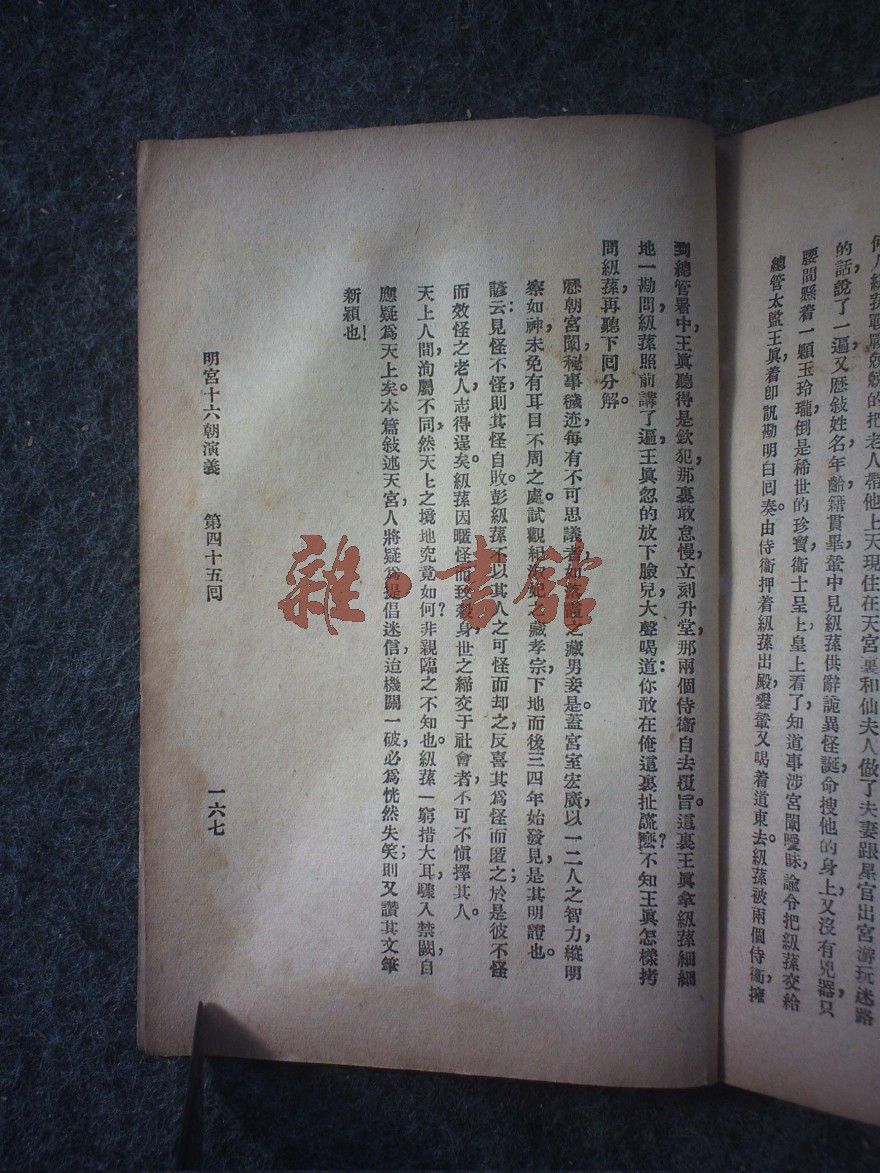 的話說了一遍又歷敍姓名年齡籍貫畢鑾中見級蓀供辭詭異怪誕命搜他的身上又沒有兇器只
腰間懸着一顆玉玲瓏倒是稀世的珍寶衞士呈上皇上看了知道事涉宮闈曖昧，諭令把級蓀交給
總管太監王眞着卽訊勘明白囘奏。由侍衞押着級蓀出殿鑾輦又喝着道東去級蓀被兩個侍衞擁
到總管署中，王眞聽得是欽犯那裏敢怠慢立刻升堂，那兩個侍衞自去覆旨。這裏王眞拿級蓀細細
地一勘問，級蓀照前講了遍，王眞忽的放下臉兒大聲喝道：你敢在俺這裏扯謊麽？不知王眞怎樣拷
問級蓀，再聽下囘分解。
歷朝宮闈秘事穢迹，每有不可思議者，如之藏男妾是。蓋宮室宏廣，以一二人之智力，縱明
察如神，未免有耳目不周之處。試觀紀淑妃之藏孝宗下地而後三四年始發見，是其明證也。
諺云：見怪不怪，則其怪自敗。彭級蓀不以其人之可怪而却之，反喜其爲怪而匿之；於是彼不怪
而效怪之老人，志得逞矣。級蓀因匿怪而致殺身，世之締交于社會者，不可不愼擇其人。
天上人間，洵屬不同，然天上之境地究竟如何？非親臨之不知也。級蓀一窮措大耳，驟入禁闕，自
應疑爲天上矣。本篇敍述天宮，人將疑爲提倡迷信，迨機關一破，必爲恍然失笑；則又讚其文筆
新穎也！
明宮十六朝演義　第四十五囘
一六七
雜·書館